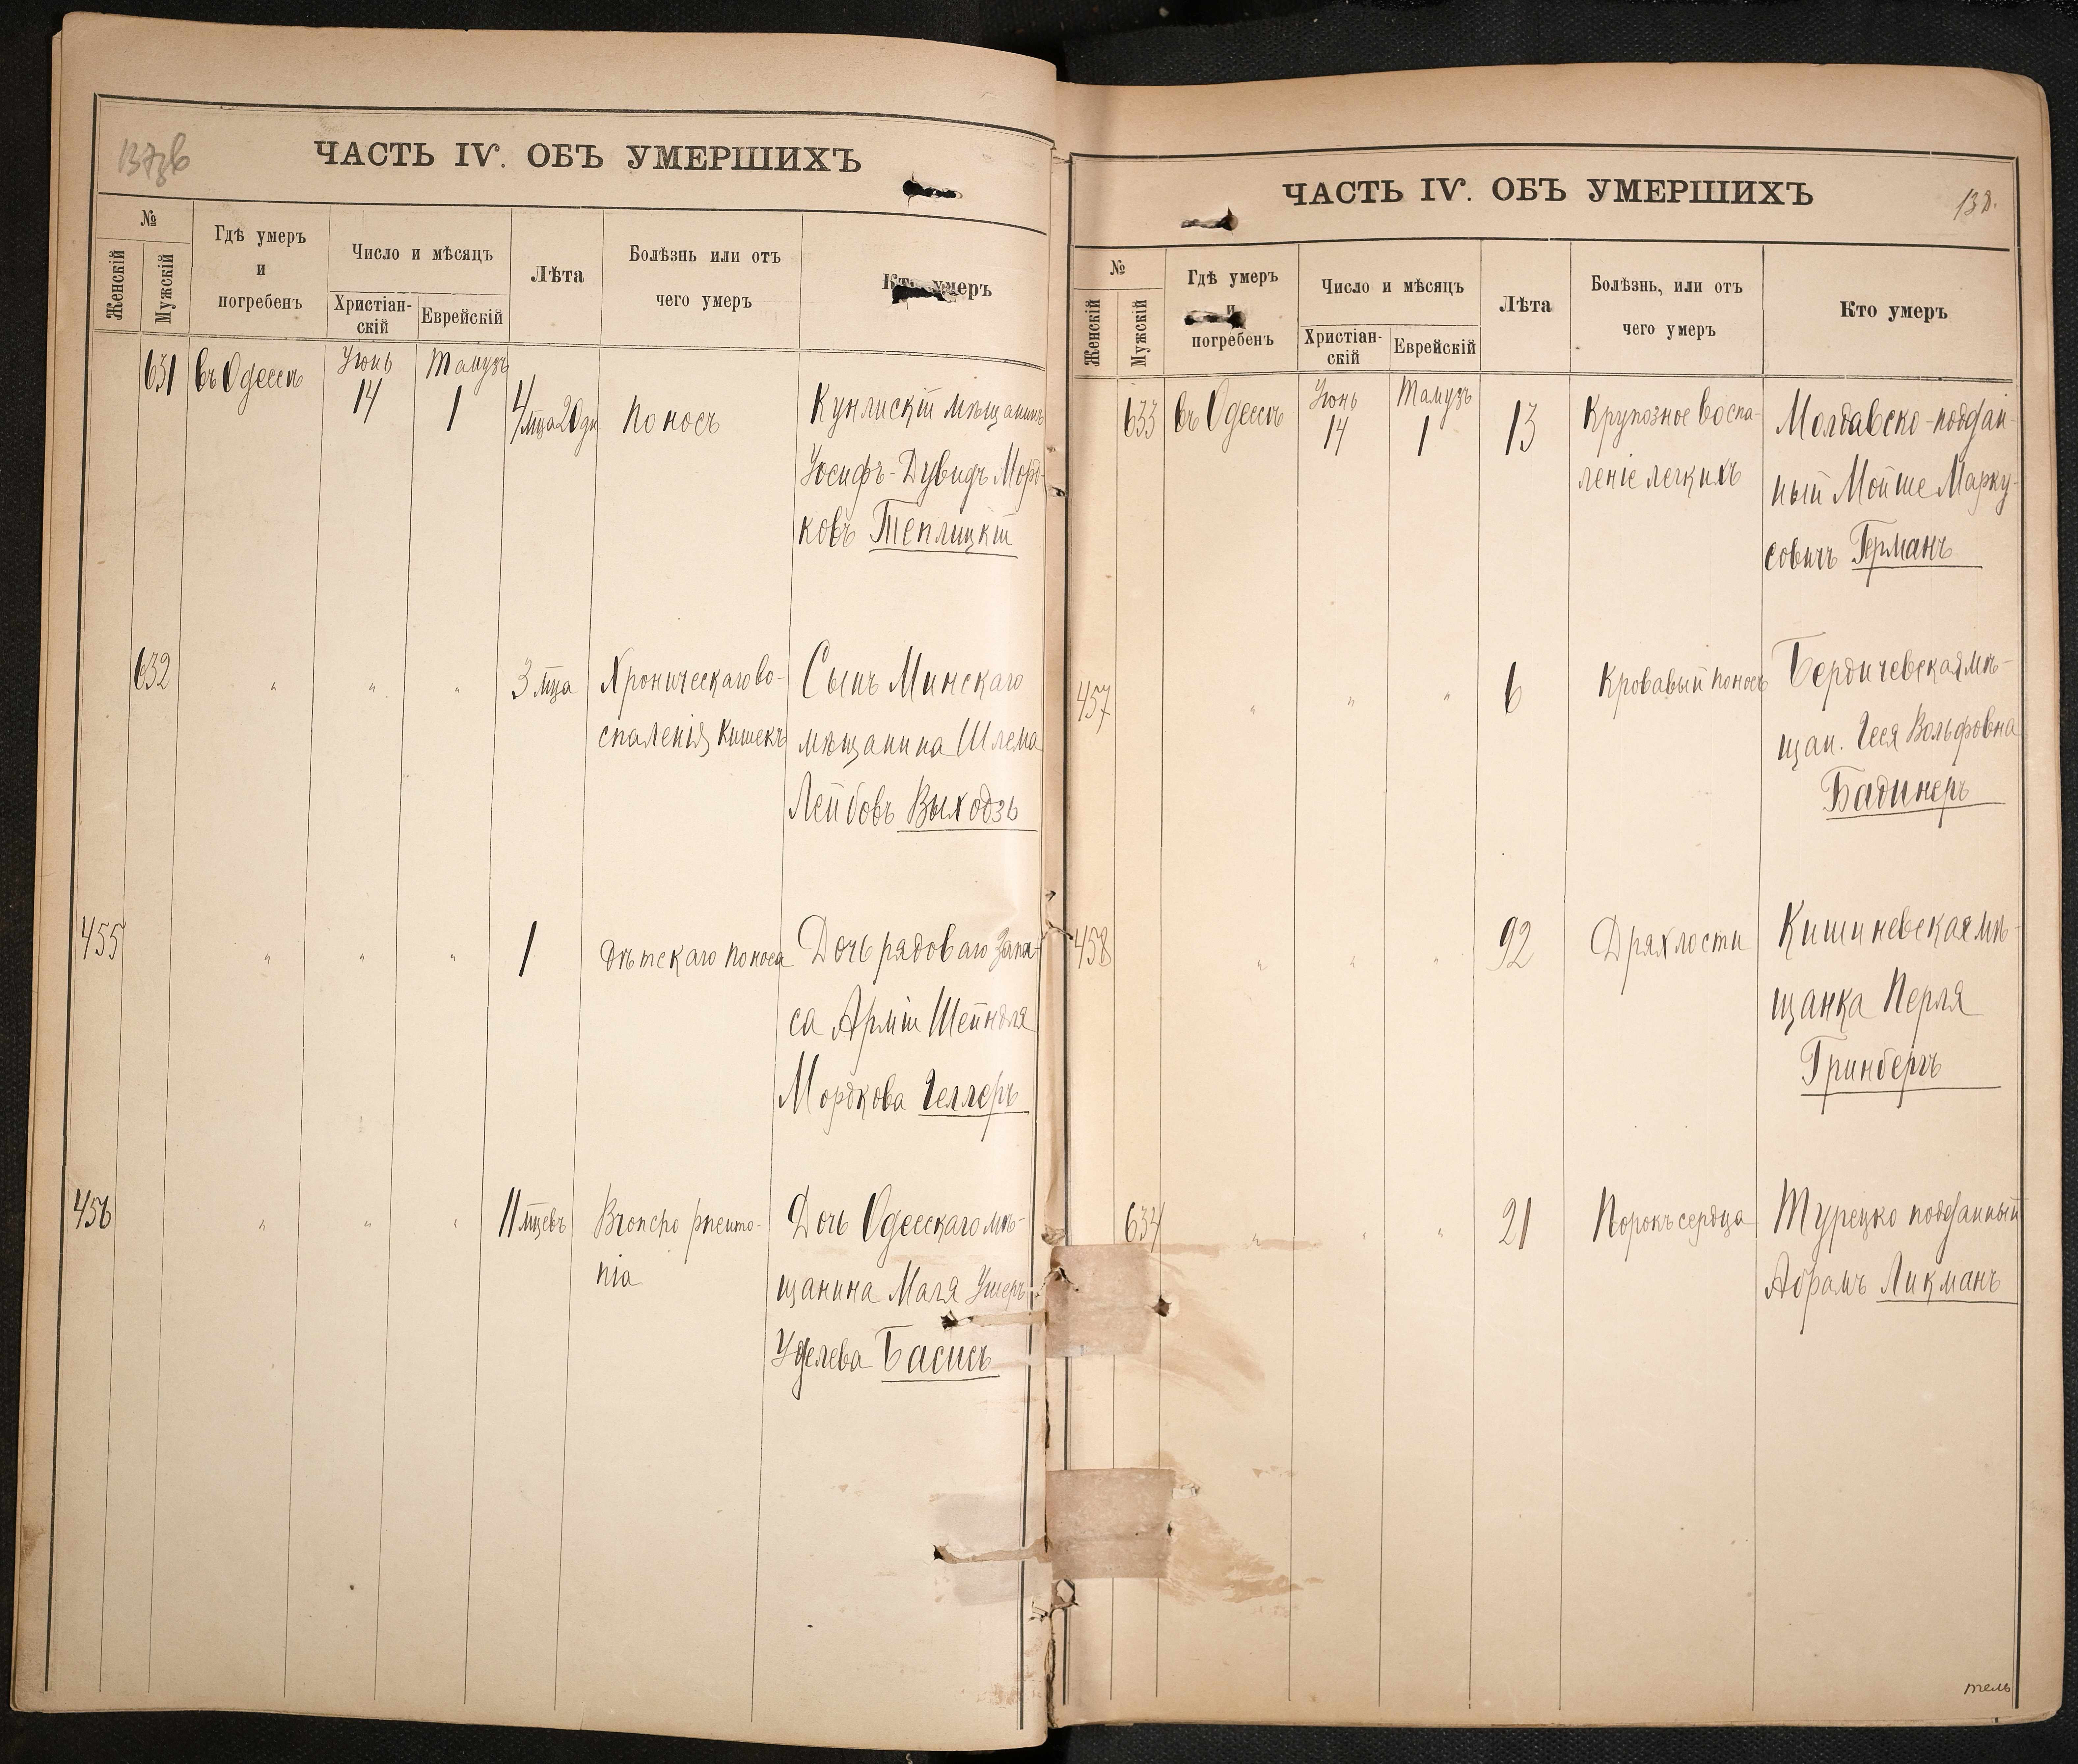 137об
ЧАСТЬ IV. ОБЪ УМЕРШИХЪ
№
Женскій
Мужскій
Гдѣ умеръ
и
погребенъ
Число и мѣсяцъ
Христіан-
скій
Еврейскій
Лѣта
Болѣзнь или отъ
чего умеръ
Кто умеръ
631
въ Одессѣ
Іюнь
14
Тамузъ
1
4 мца 20 дн
Поносъ
мѣщанинъ
Іосифъ-Дувидъ Морд-
ковъ Теплицкій
632
" " "
3 мца
Хроническаго во-
спаленія кишекъ
Сынъ Минскаго
мѣщанина Шлема
Лейбовъ Выходзъ
455
" " "
1
дѣтскаго поноса
Дочь рядоваго Запа-
са Арміи Шейндля
Мордкова Геллеръ
456
" " "
11 мцевъ
Broncho pneumo-
nia
Дочь Одесскаго мѣ-
щанина Маля Ушеръ
Уделева Басисъ
ЧАСТЬ IV. ОБЪ УМЕРШИХЪ
138.
№
Женскій
Мужскій
Гдѣ умеръ
и
погребенъ
Число и мѣсяцъ
Христіан-
скій
Еврейскій
Лѣта
Болѣзнь, или отъ
чего умеръ
Кто умеръ
633
въ Одессѣ
Іюнь
14
Тамузъ
1
13
Крупозное воспа-
леніе легкихъ
Молдавско-поддан-
ный Мойше Марку-
совичъ Германъ
457
" " "
6
Кровавый поносъ
Бердичевская мѣ-
щан. Геся Вольфовна
Бадинеръ
458
" " "
92
Дряхлости
Кишиневская мѣ-
щанка Перля
Гринбергъ
634
" " "
21
Порокъ сердца
Турецко подданный
Абрамъ Ликманъ
тель